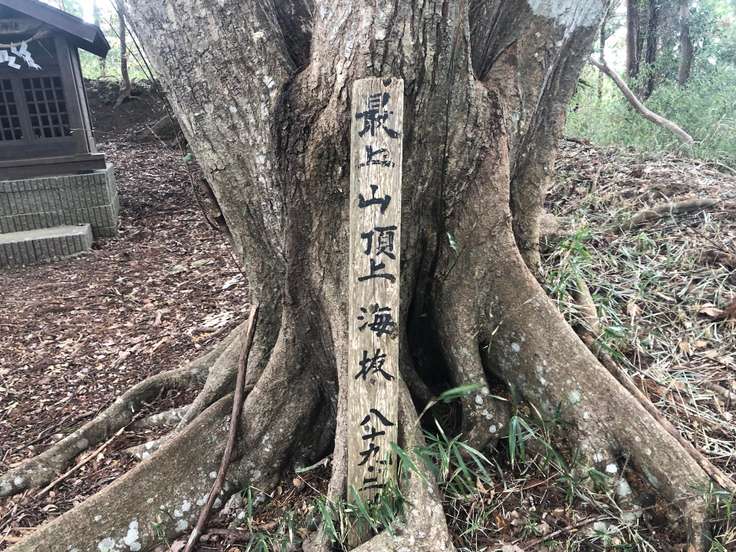 最上山頂上海抜八十九.二